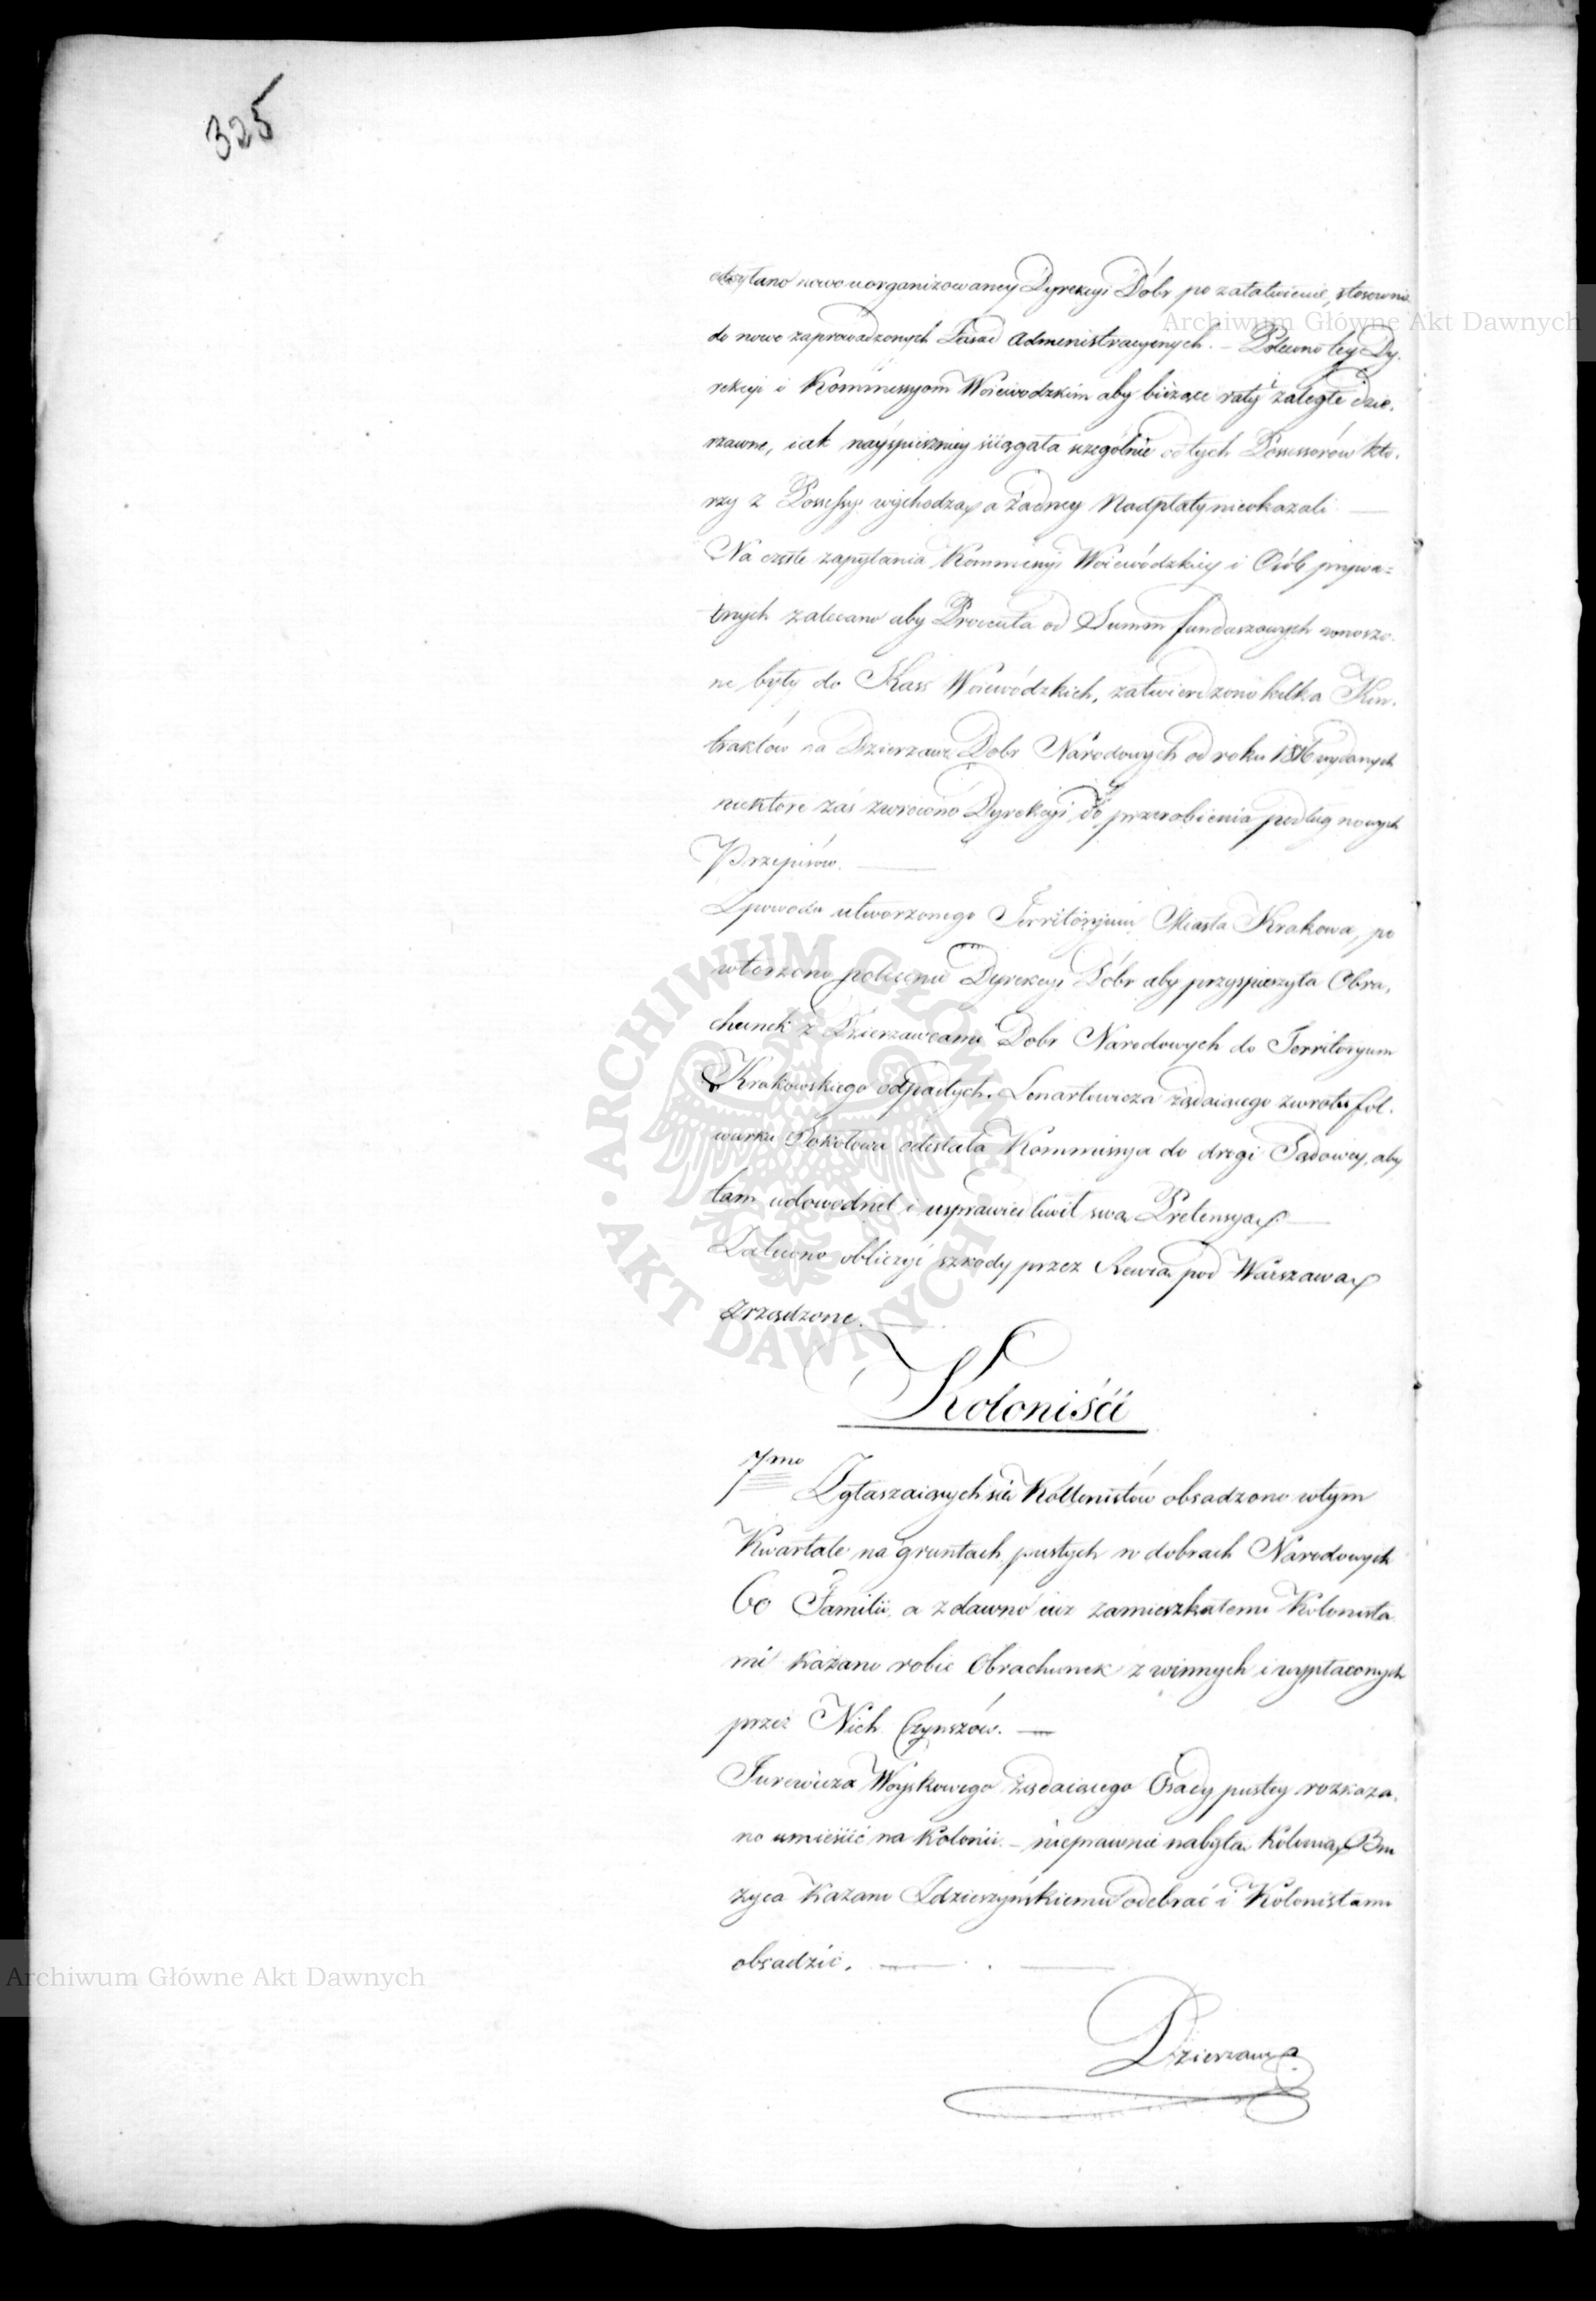 325
odsyłano nowo uorganizowaney Dyrekcyi Dóbr po załatwienie, stosownie
do nowo zaprowadzonych Zasad Administracyinych. – Polecono tey Dy-
rekcyi i Kommissyom Woiewodzkim aby bieżące raty i zaległe dzie-
rzawne, iak nayśpieszniey ściągała szczegolnie od tych Possessorów któ-
rzy z Possessyi wychodzą, a żadney Nadpłaty nieokazali —
Na częste zapytania Kommissyi Woiewódzkiey i Osób prywa=
tnych zalecano aby Procenta od Summ funduszowych wnoszo-
ne były do Kass Woiewódzkich, zatwierdzono kilka Kon-
traktów na Dzierzawę Dobr Narodowych od roku 1816 wydanych
niektóre zaś zwrócono Dyrekcyi do przerobienia podług nowych
Przepisów. —
Z powodu utworzonego Territoryium Miasta Krakowa, po
wtorzono polecenie Dyrekcyi Dóbr aby przyspieszyła Obra-
chunek z Dzierzawcami Dobr Narodowych do Territoryum
Krakowskiego odpadłych. Lenartowicza żądaiącego zwrotu fol-
warku Sokołowa odesłała Kommissya do drogi Sądowey, aby
tam udowodnił i usprawiedliwił swą Pretensyą —
Zalecono obliczyć szkody przez Rewią pod Warszawą
zrządzone. —
Koloniści
7mo Zgłaszaiących się Kollonistów obsadzono w tym
Kwartale na gruntach pustych w dobrach Narodowych
60 Familii, a z dawno iuż zamieszkałemi Kolonista
mi kazano robić Obrachunek z winnych i wypłaconych
przez Nich Czynszów. —
Jurewicza Woyskowego żądaiącego Osady pustey rozkaza-
no umieścić na Kolonii. – nieprawnie nabytą Kolonią Bru
życa Kazano Zdzieszyńskiemu odebrać i Kolonistami
obsadzić. —
Dzierzawy
Archiwum Główne Akt Dawnych
Archiwum Główne Akt Dawnych
ARCHIWUM GŁÓWNE • AKT DAWNYCH •